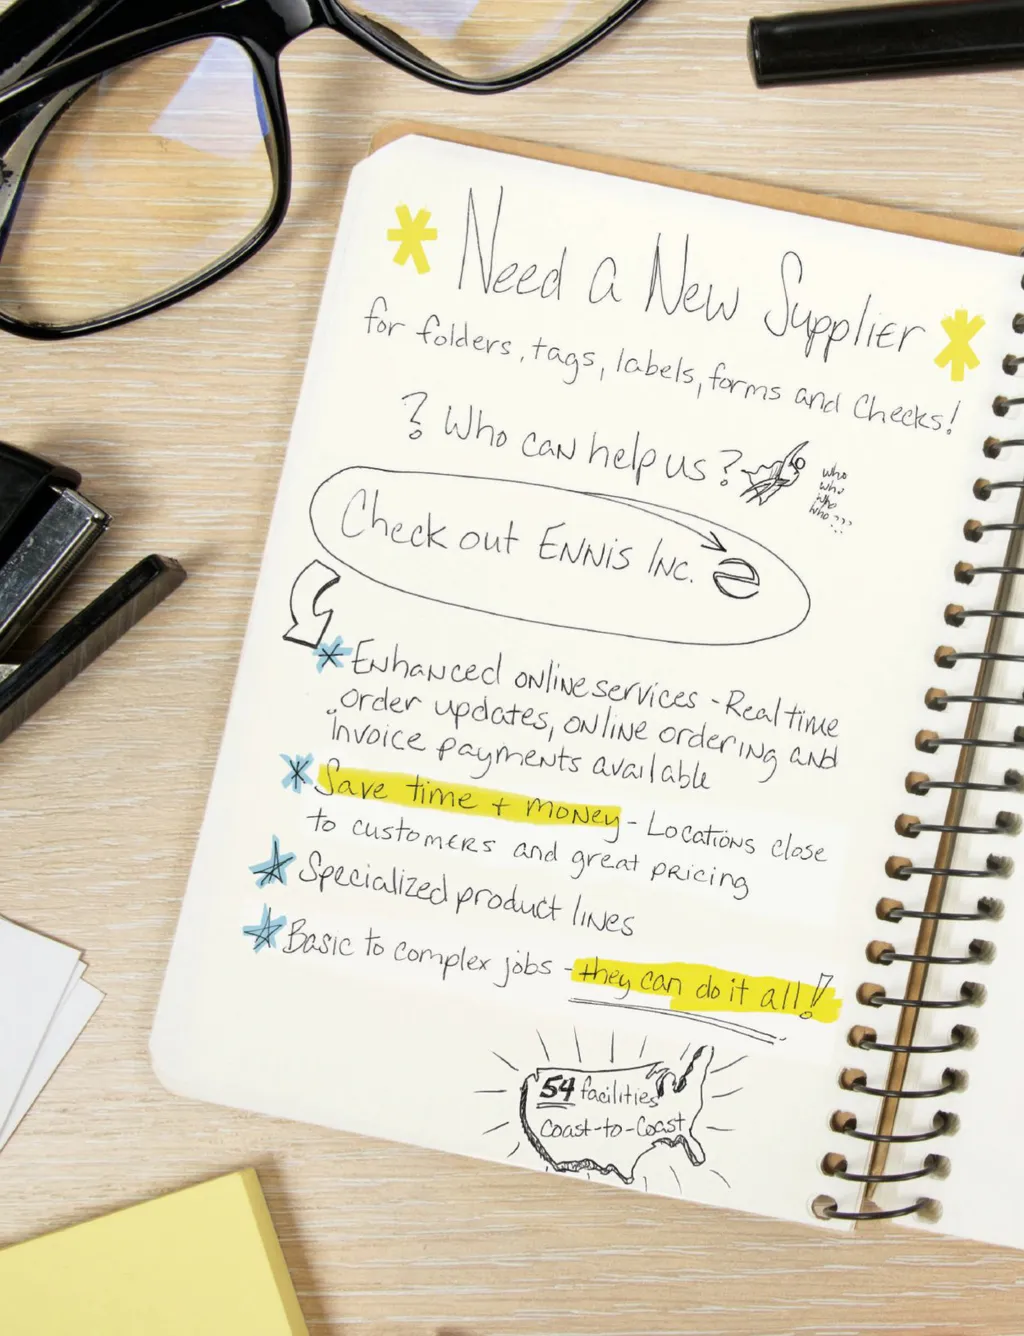 Need a New Supplier
for folders, tags, labels, forms and checks!
? Who can help us?
who
who
who
who???
Check out Ennis Inc. e
Enhanced online services - Real time
order updates, online ordering and
Invoice payments available
Save time + money - Locations close
to customers and great pricing
Specialized product lines
Basic to complex jobs - they can do it all!
54 facilities
Coast-to-Coast